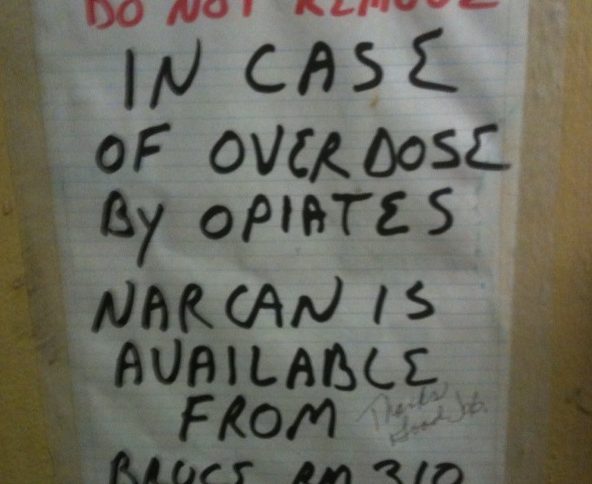 DO NOT REMOVE
IN CASE
OF OVERDOSE
BY OPIATES
NARCAN IS
AVAILABLE
FROM
Thanks
Good Job.
BRUCE RM 310